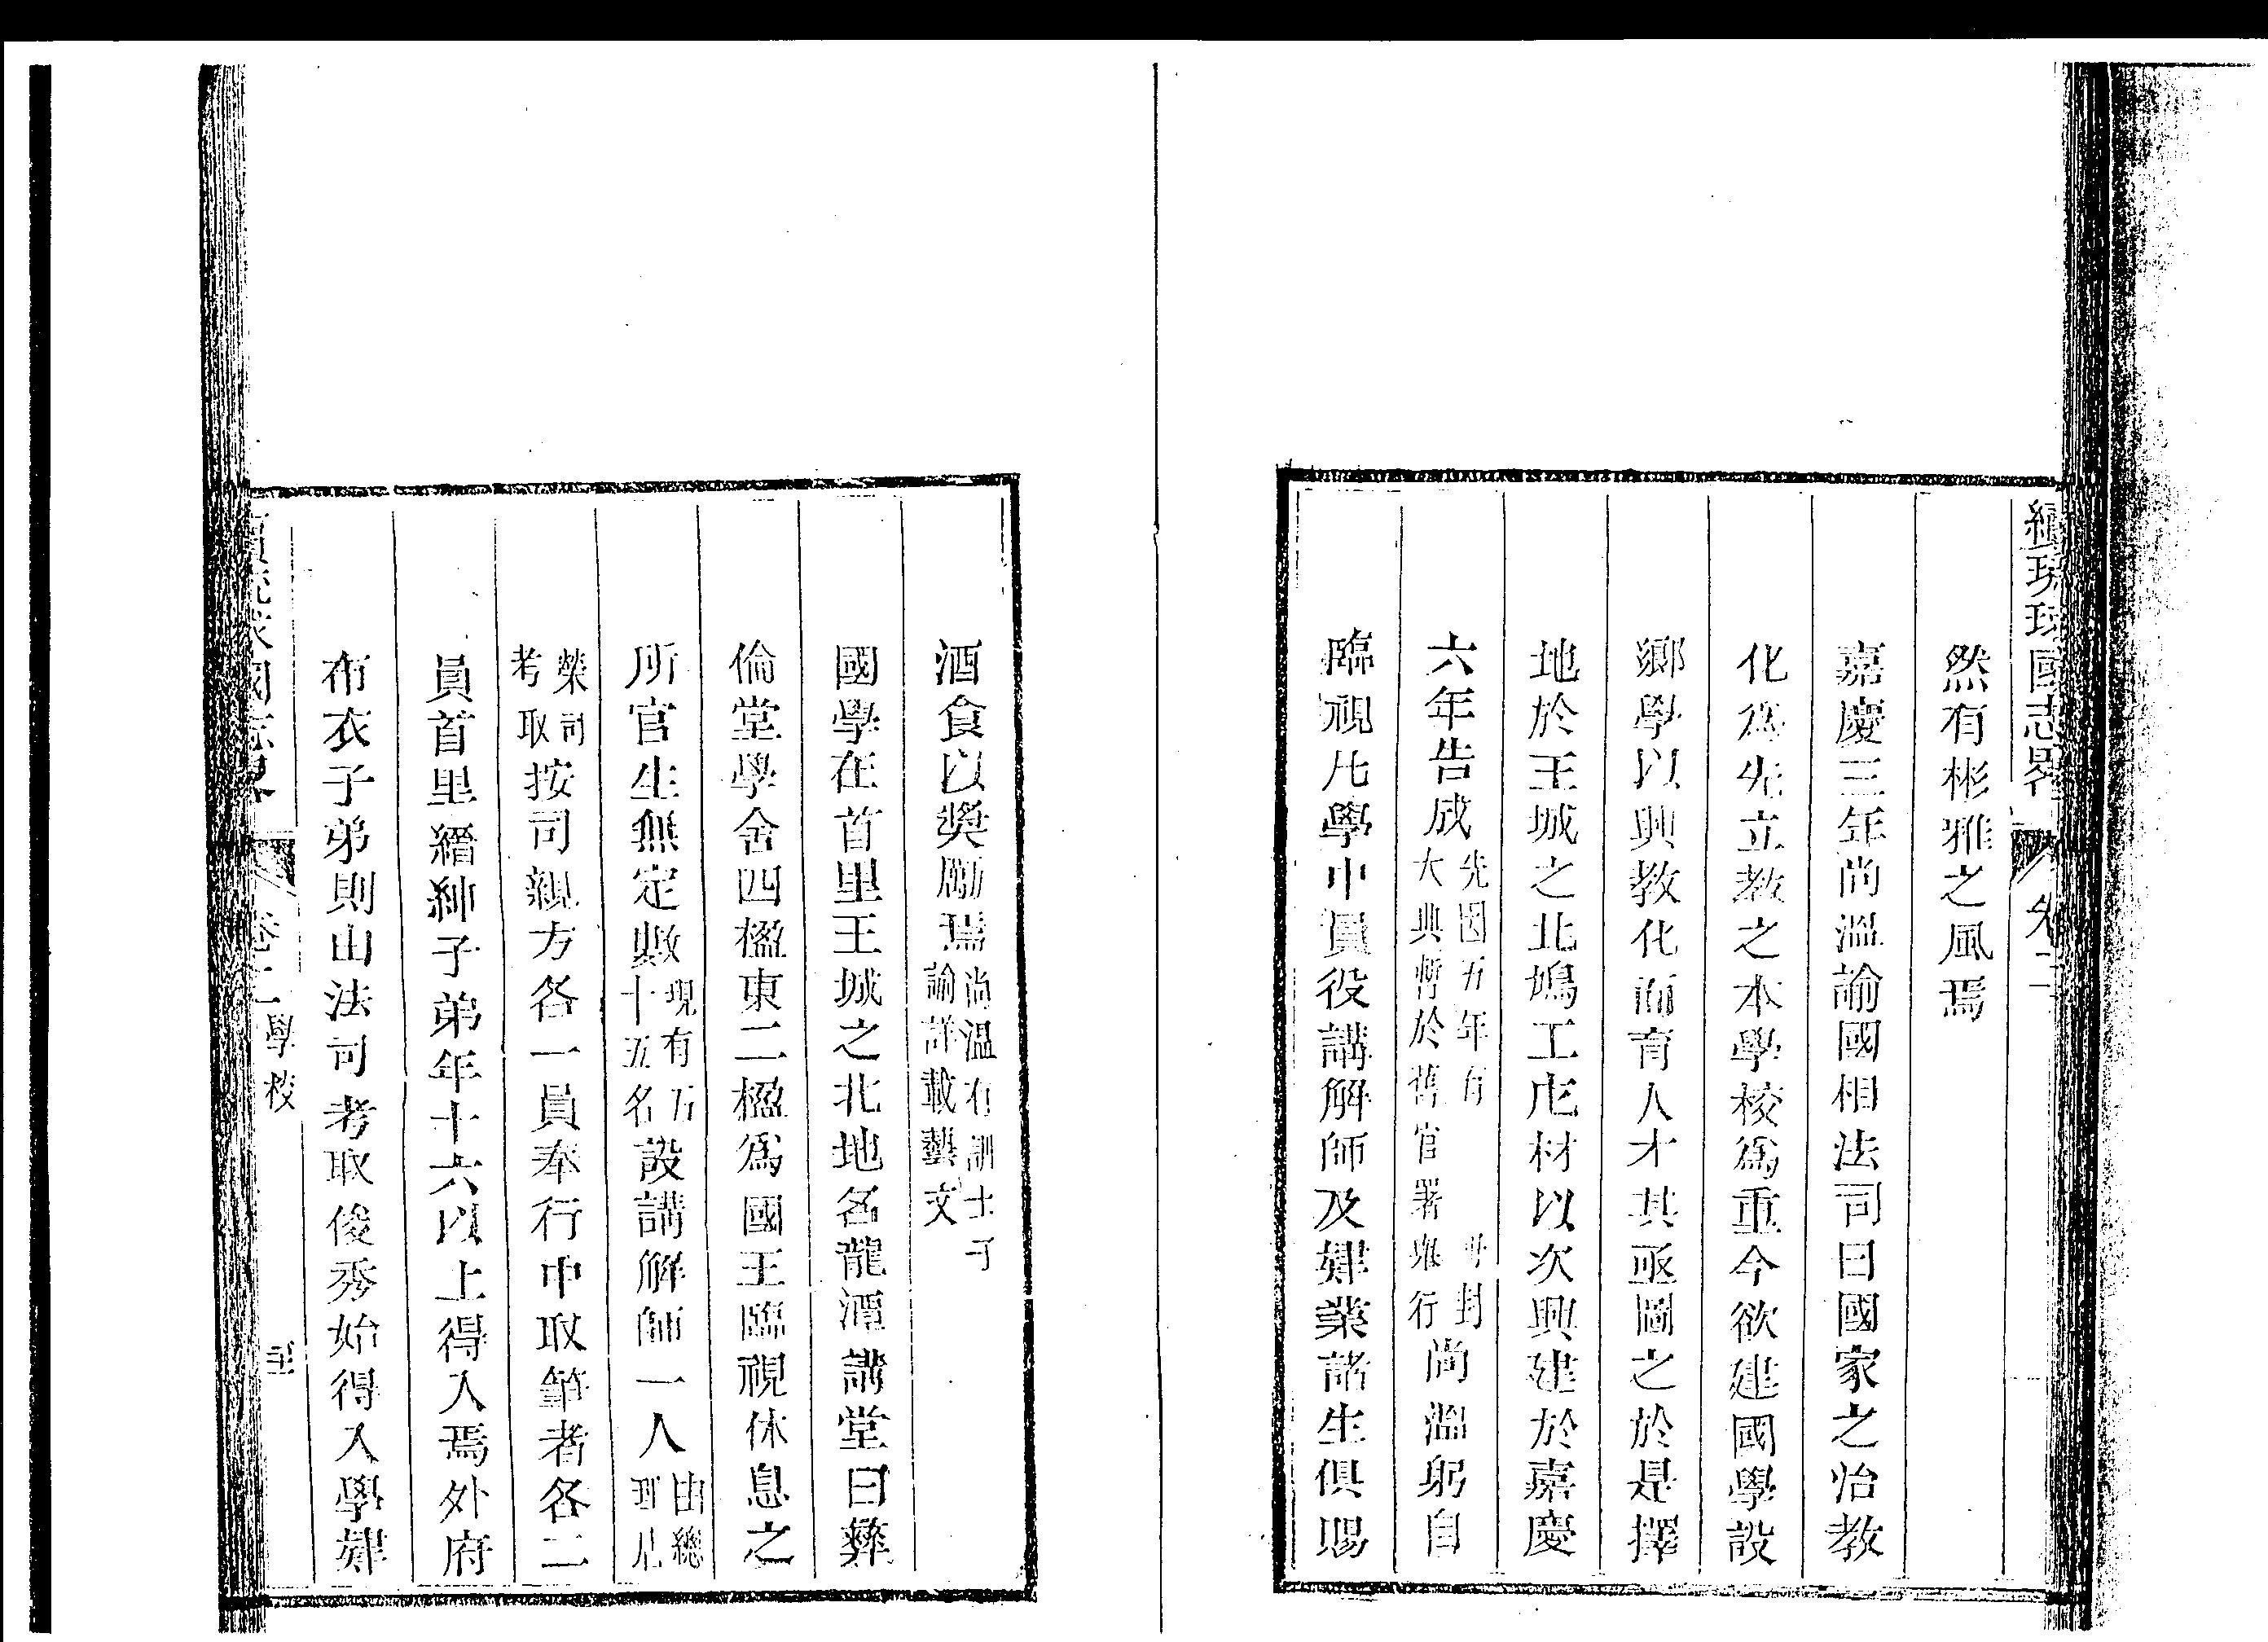 續琉球國志畧 卷二
然有彬雅之風焉
嘉慶三年尚溫諭國相法司曰國家之治教
化爲先立教之本學校爲重今欲建國學設
鄉學以興教化而育人才其亟圖之於是擇
地於王城之北鳩工庀材以次興建於嘉慶
六年告成先因五年有冊封大典暫於舊官署舉行尚溫躬自
臨視凡學中員役講解師及肄業諸生俱賜
酒食以奬勵焉尚溫有訓士子諭詳載藝文
國學在首里王城之北地名龍潭講堂曰彝
倫堂學舍四楹東二楹爲國王臨視休息之
所官生無定數現有五十五名設講解師一人由總理
榮司考取按司親方各一員奉行中取筆者各二
員首里縉紳子弟年十六以上得入焉外府
布衣子弟則由法司考取俊秀始得入學肄
續琉球國志畧 卷二 學校